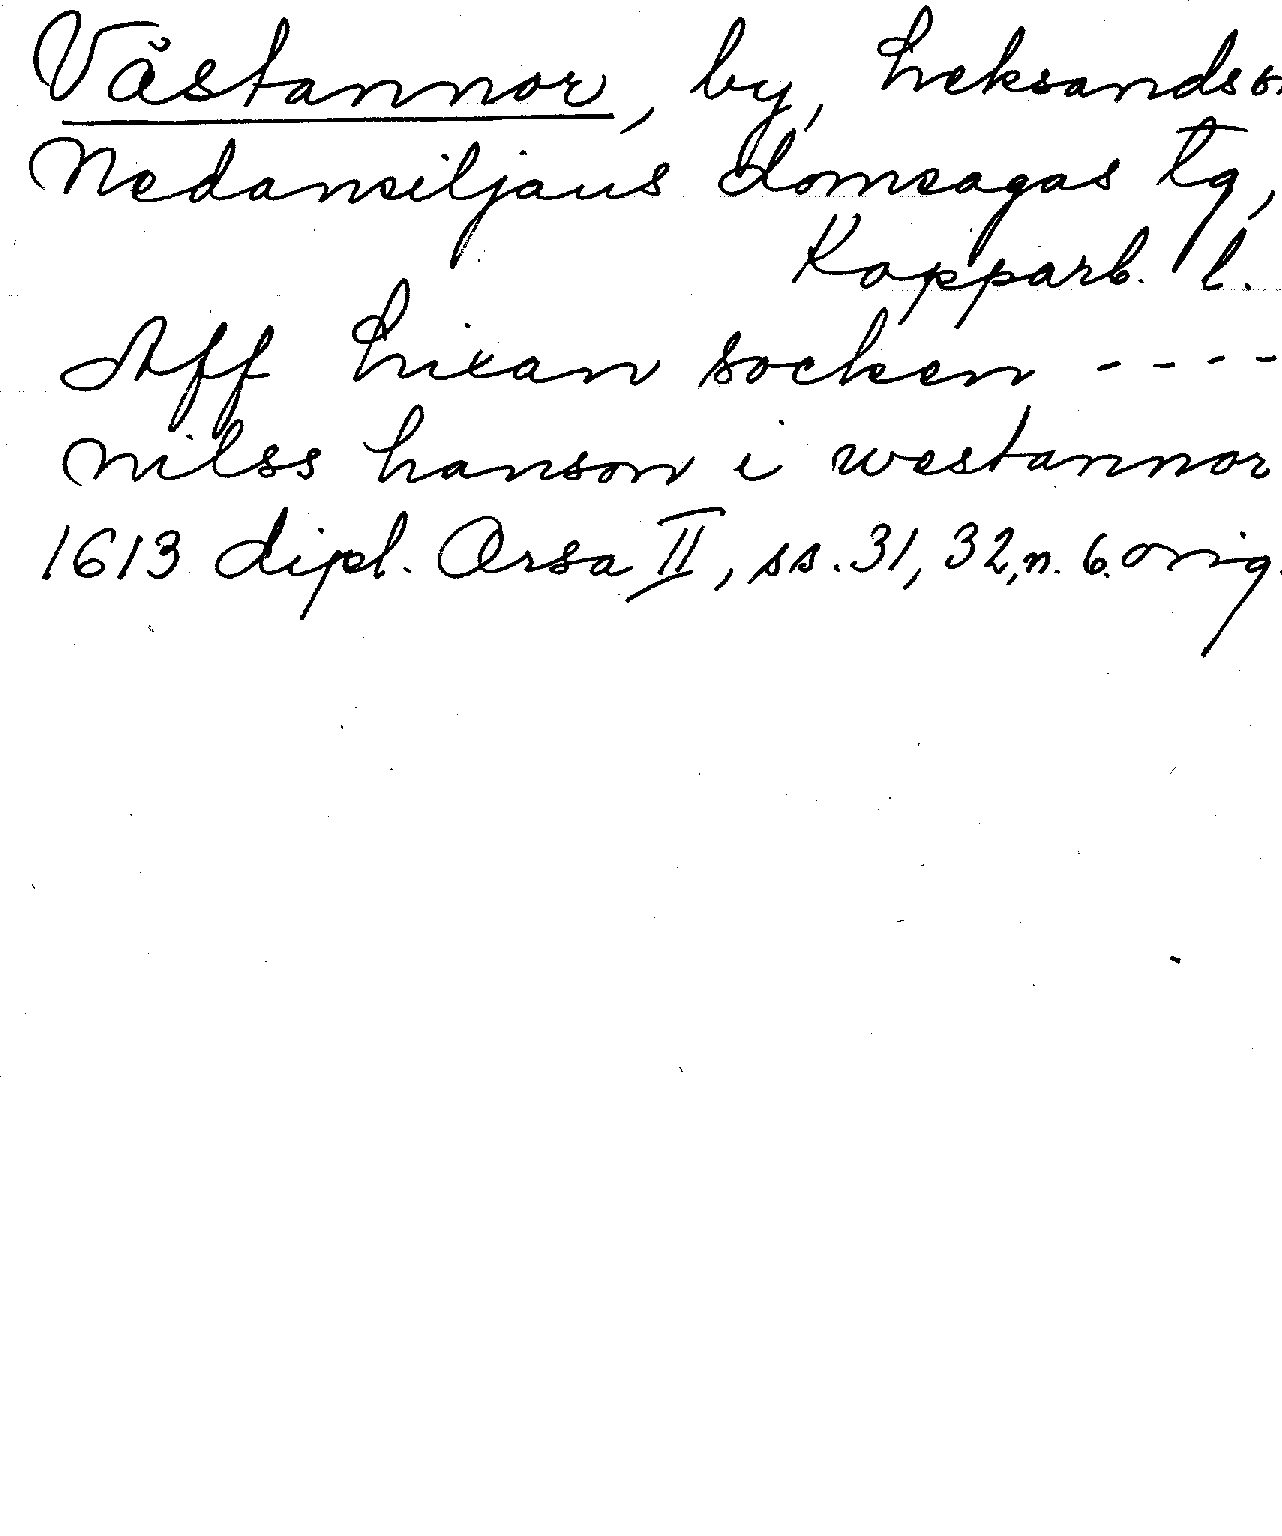 Västannor, by, Leksands sn
Nedansiljans domsagas tg,
Kopparb. l.
Aff Lixan socken ----
nilss hanson i westannor
1613 dipl. Orsa II, ss. 31, 32, n. 6. orig.